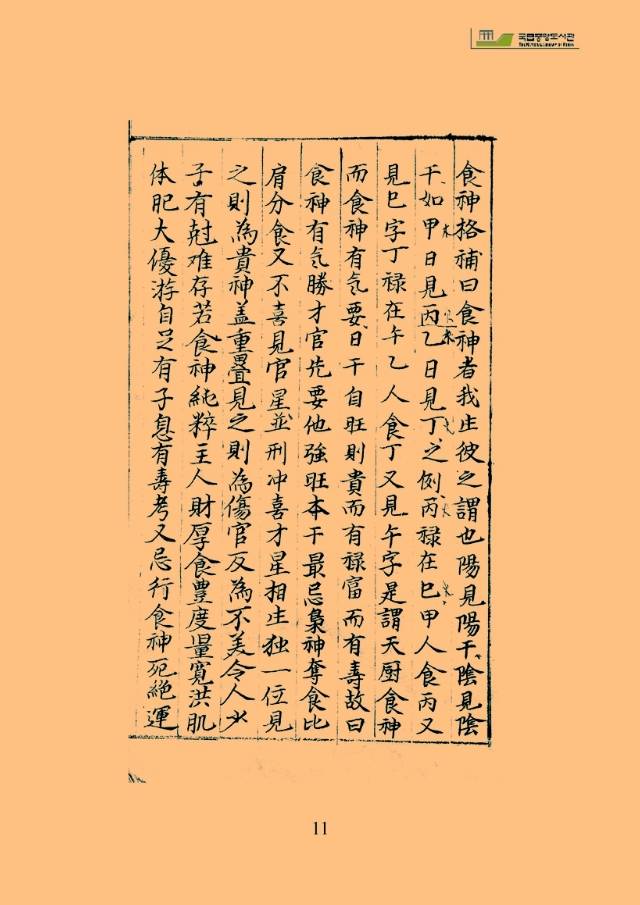 국립중앙도서관
THE NATIONAL LIBRARY OF KOREA
食神格補曰食神者我生彼之謂也陽見陽干陰見陰
干如甲日見丙乙日見丁之例丙祿在巳甲人食丙又
見巳字丁祿在午乙人食丁又見午字是謂天厨食神
而食神有氣要日干自旺則貴而有祿富而有壽故曰
食神有气勝才官先要他強旺本干最忌梟神奪食比
肩分食又不喜見官星並刑冲喜才星相生独一位見
之則為貴神盖重疊見之則為傷官反為不美令人少
子有尅难存若食神純粹主人財厚食豊度量寬洪肌
体肥大優游自足有子息有壽考又忌行食神死絕運
11